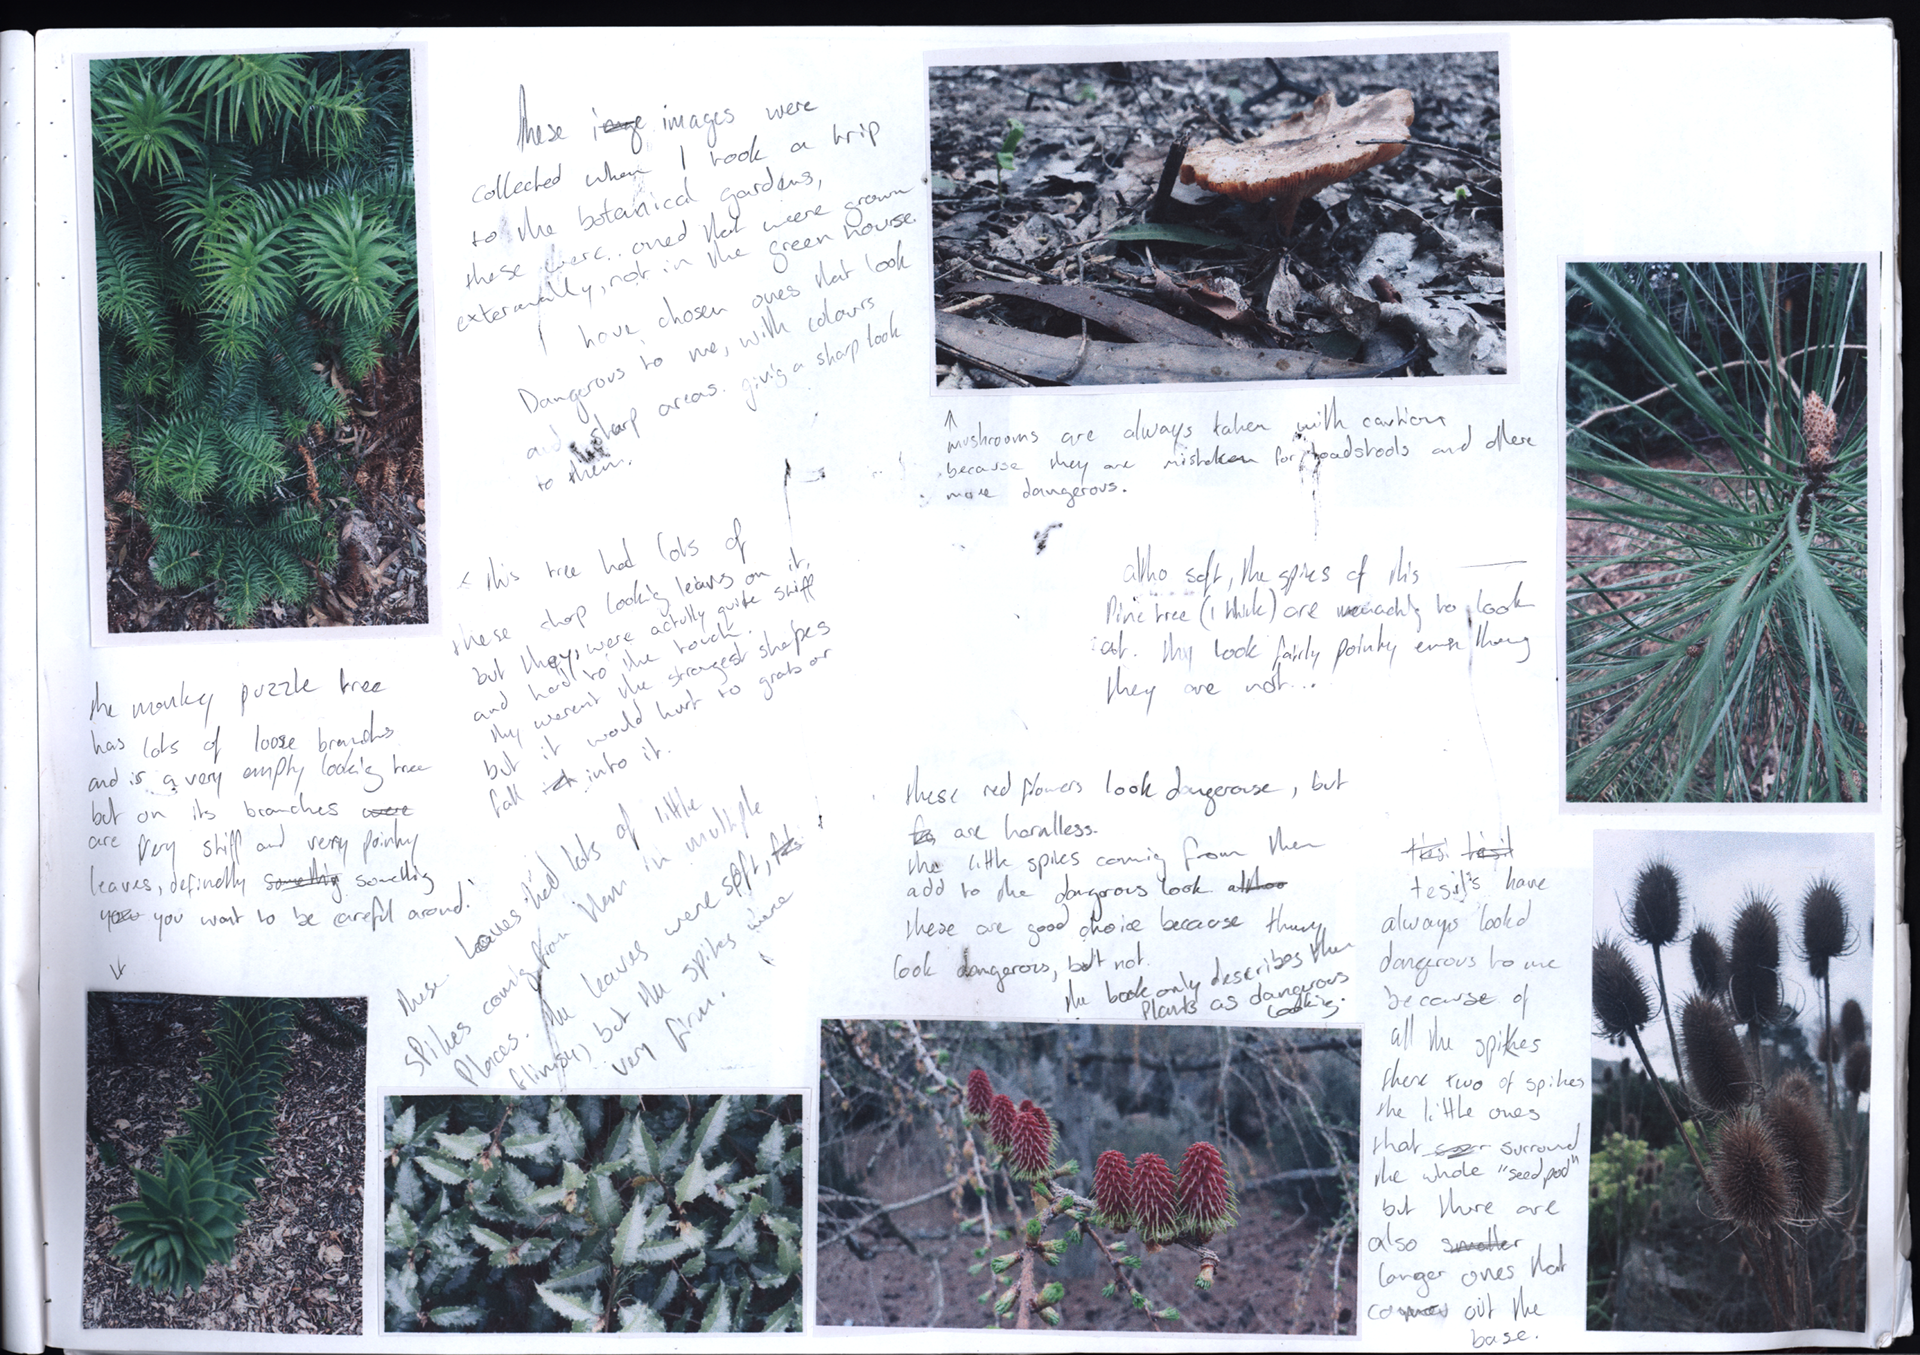 these image images were
collected when I took a trip
to the botanical gardens,
these were.. ones that were grown
externally, not in the green house.
I have chosen ones that look
Dangerous to me, with colours
and sharp areas. giving a sharp look
to them.
↑
mushrooms are always taken with caution
because they are mistaken for toadstools and
more dangerous.
this tree had lots of
these sharp looking leaves on it,
but they were actully quite stiff
and hard to the touch.
they werent the strangest shapes
but it would hurt to grab or
fall into it.
altho soft, the spikes of this
Pine tree (I think) are to look
at. They look fairly pointy even thoug
they are not...
the monkey puzzle tree
has lots of loose branches
and is a very empty looking tree
but on its branches were
are very stiff and very pointy
leaves, definetly something somethig
you you want to be careful around!
these leaves had lots of little
spikes coming from them in multiple
Places. the leaves were soft,
flimsy, but the spikes were
very firm.
these red flowers look dangerouse, but
are harmless.
the little spikes coming from them
add to the dangerous look althoo
these are good choice because they
look dangerous, but not.
the book only describes the
Plants as dangerous
looking.
tesil's have
always looked
dangerous to me
because of
all the spikes
there two of spikes
the little ones
that surround
the whole "seed pod"
but there are
also smaller
longer ones that
out the
base.